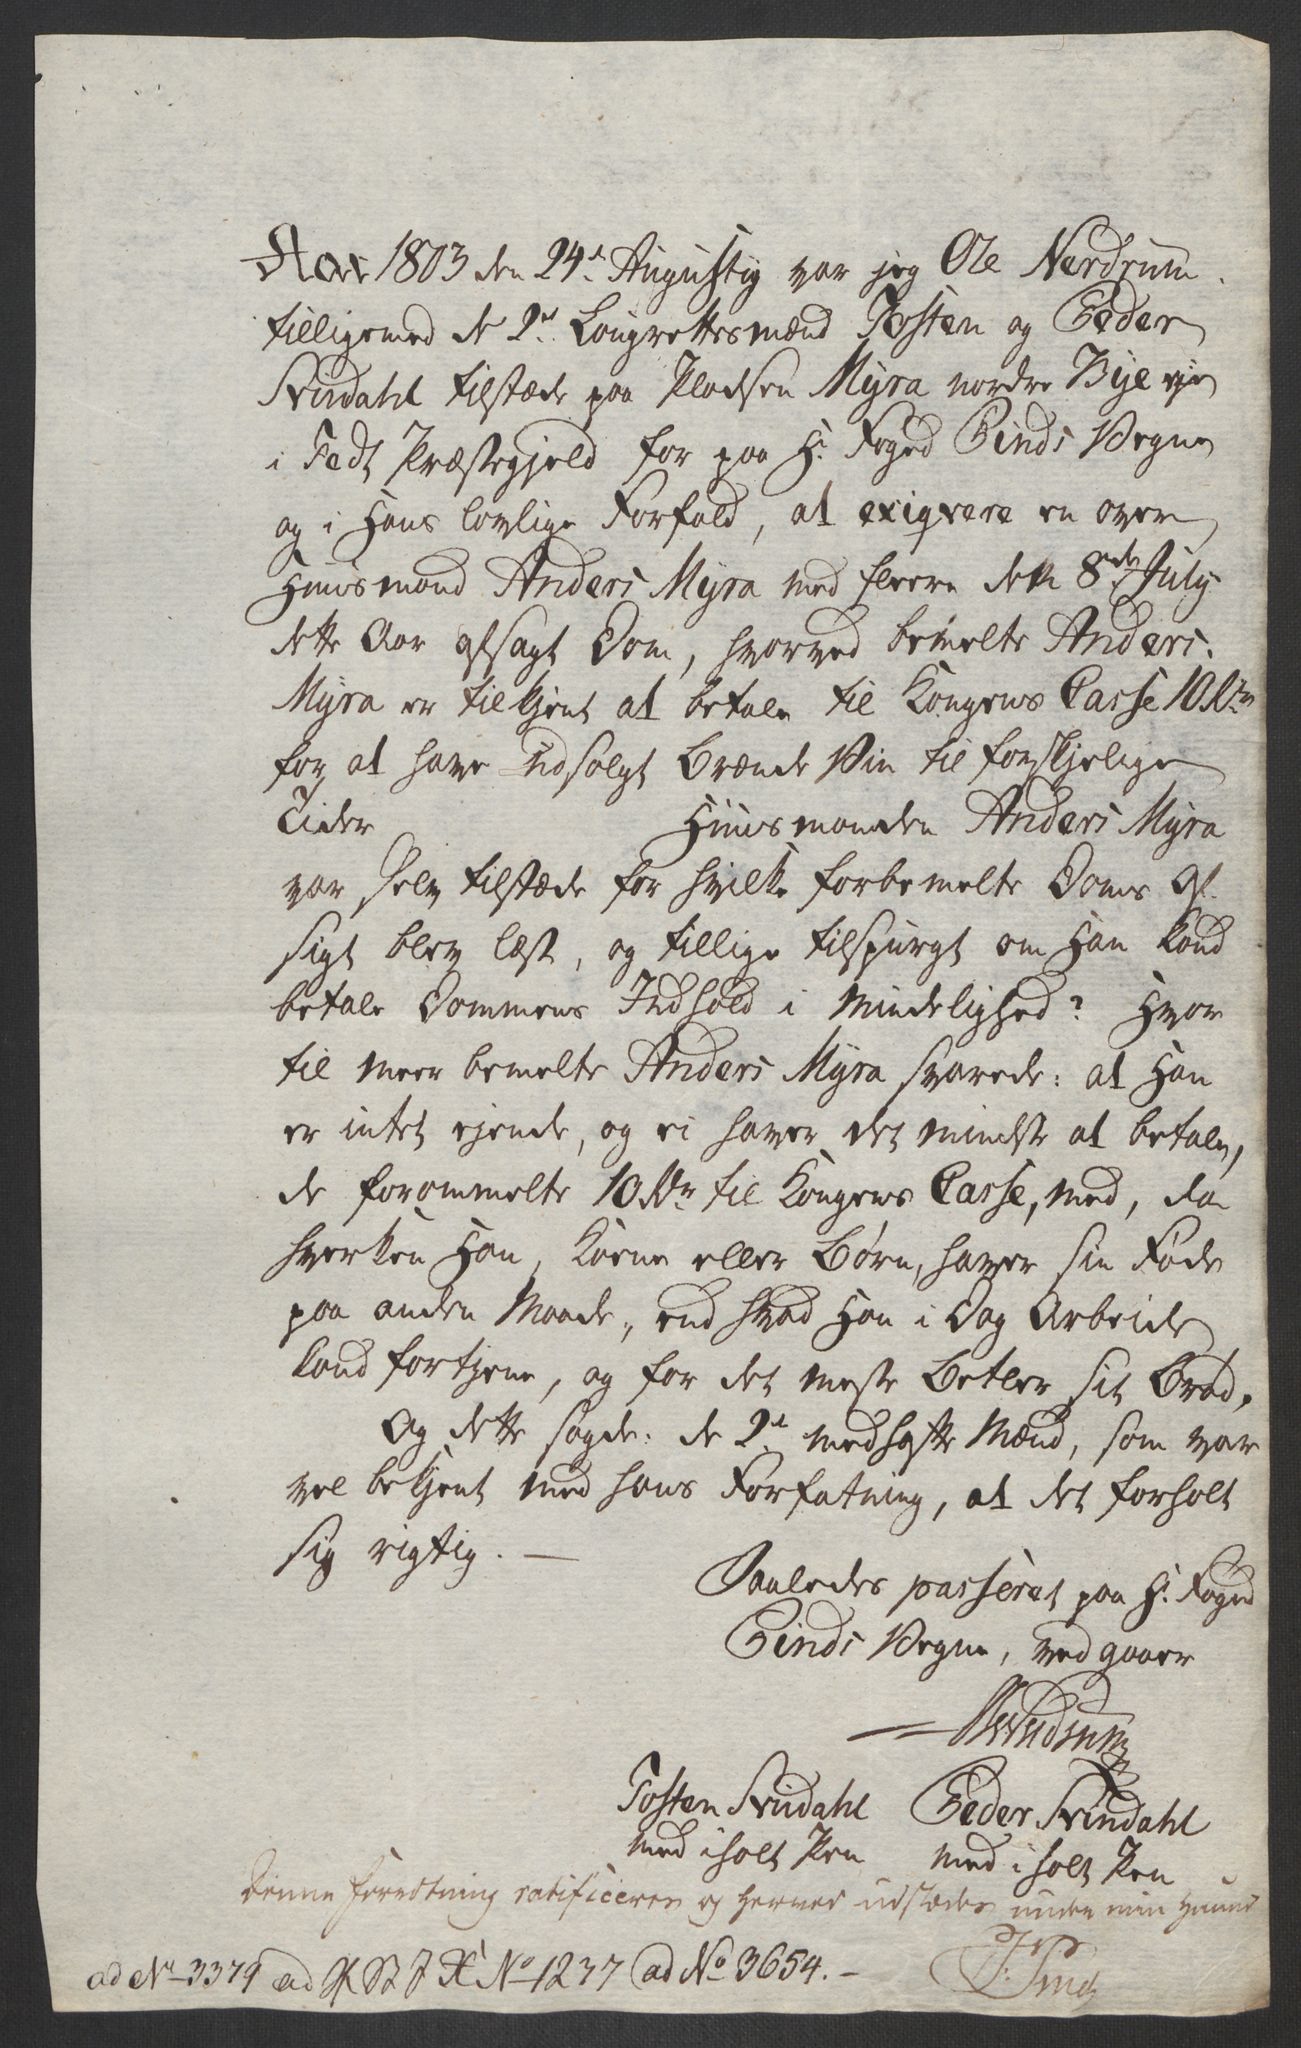 Aar 1803 den 24d Augusty var jeg Ole Nerdrum
tilligemed de 2de Laugrettesmænd Tosten og Peder
Svindahl tilstæde paa Pladsen Myra nordre Bye eje
i Fedt Præstegjeld for paa Hr Foged Pinds Vegne
og i Hans lovlige Forfald, at exiqvere en over
Huusmand Anders Myra med fleere den 8de July
dette Aar afsagt Dom, hvorved bemelte Anders
Myra er tilkjent at betale til Kongens Casse 10 Rdr
for at have udsolgt Brænde Viin til forskjelige
Tider Huusmanden Anders Myra
var selv tilstæde for hvilke forbemelte Doms Af-
sigt blev læst, og tillige tilspurgt om Han kand
betale Dommens Indhold i Mindelighed? Hvor
til meer bemelte Anders Myra svarede: at Han
er intet ejende, og ei haver det mindste at betale,
de forommelte 10 Rdr til Kongens Casse, med, da
hverken Han, Kone eller Børn, haver sin Føde
paa anden Maade, end hvad Han i Dag Arbeide
kand fortjene, og for det meste Betler sit Brød.
Og dette sagde de 2de medhafte Mænd, som var
vel bekjent med hans Forfatning, at det forholt
sig rigtig. —
Saaledes passeret paa Hr Foged
Pinds Vegne, vedgaaer
Nerdrum
Tosten Svindahl Peder Svindahl
med iholt Pen med iholt Pen
Denne Forretning ratificeres og herved udstædes under min Haand
Pind
ad No 3379 ad No 1237 ad No 3654. –